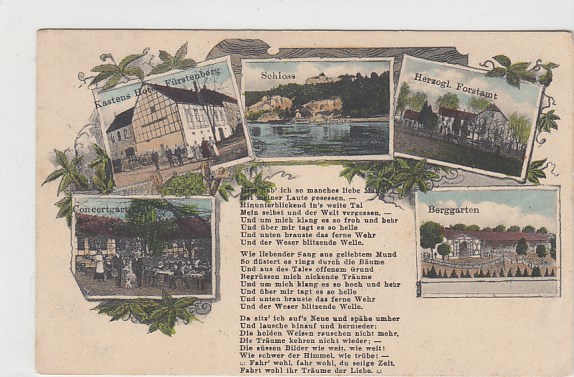 Kastens Hotel Fürstenberg
Schloss
Herzogl. Forstamt
Concertgarten
Berggarten
Hier hab' ich so manches liebe Mal
Mit meiner Laute gesessen, —
Hinunterblickend in's weite Tal
Mein selbst und der Welt vergessen, —
Und um mich klang es so froh und hehr
Und über mir tagt es so helle
Und unten brauste das ferne Wehr
Und der Weser blitzende Welle.
Wie liebender Sang aus geliebtem Mund
So flüstert es rings durch die Bäume
Und aus des Tales offenem Grund
Begrüssen mich nickende Träume
Und um mich klang es so hoch und hehr
Und über mir tagt es so helle
Und unten brauste das ferne Wehr
Und der Weser blitzende Welle.
Da sitz' ich auf's Neue und spähe umher
Und lausche hinauf und hernieder;
Die holden Weisen rauschen nicht mehr,
Die Träume kehren nicht wieder; —
Die süssen Bilder wie weit, wie weit!
Wie schwer der Himmel, wie trübe! —
Fahr' wohl, fahr wohl, du selige Zeit,
Fahrt wohl ihr Träume der Liebe.